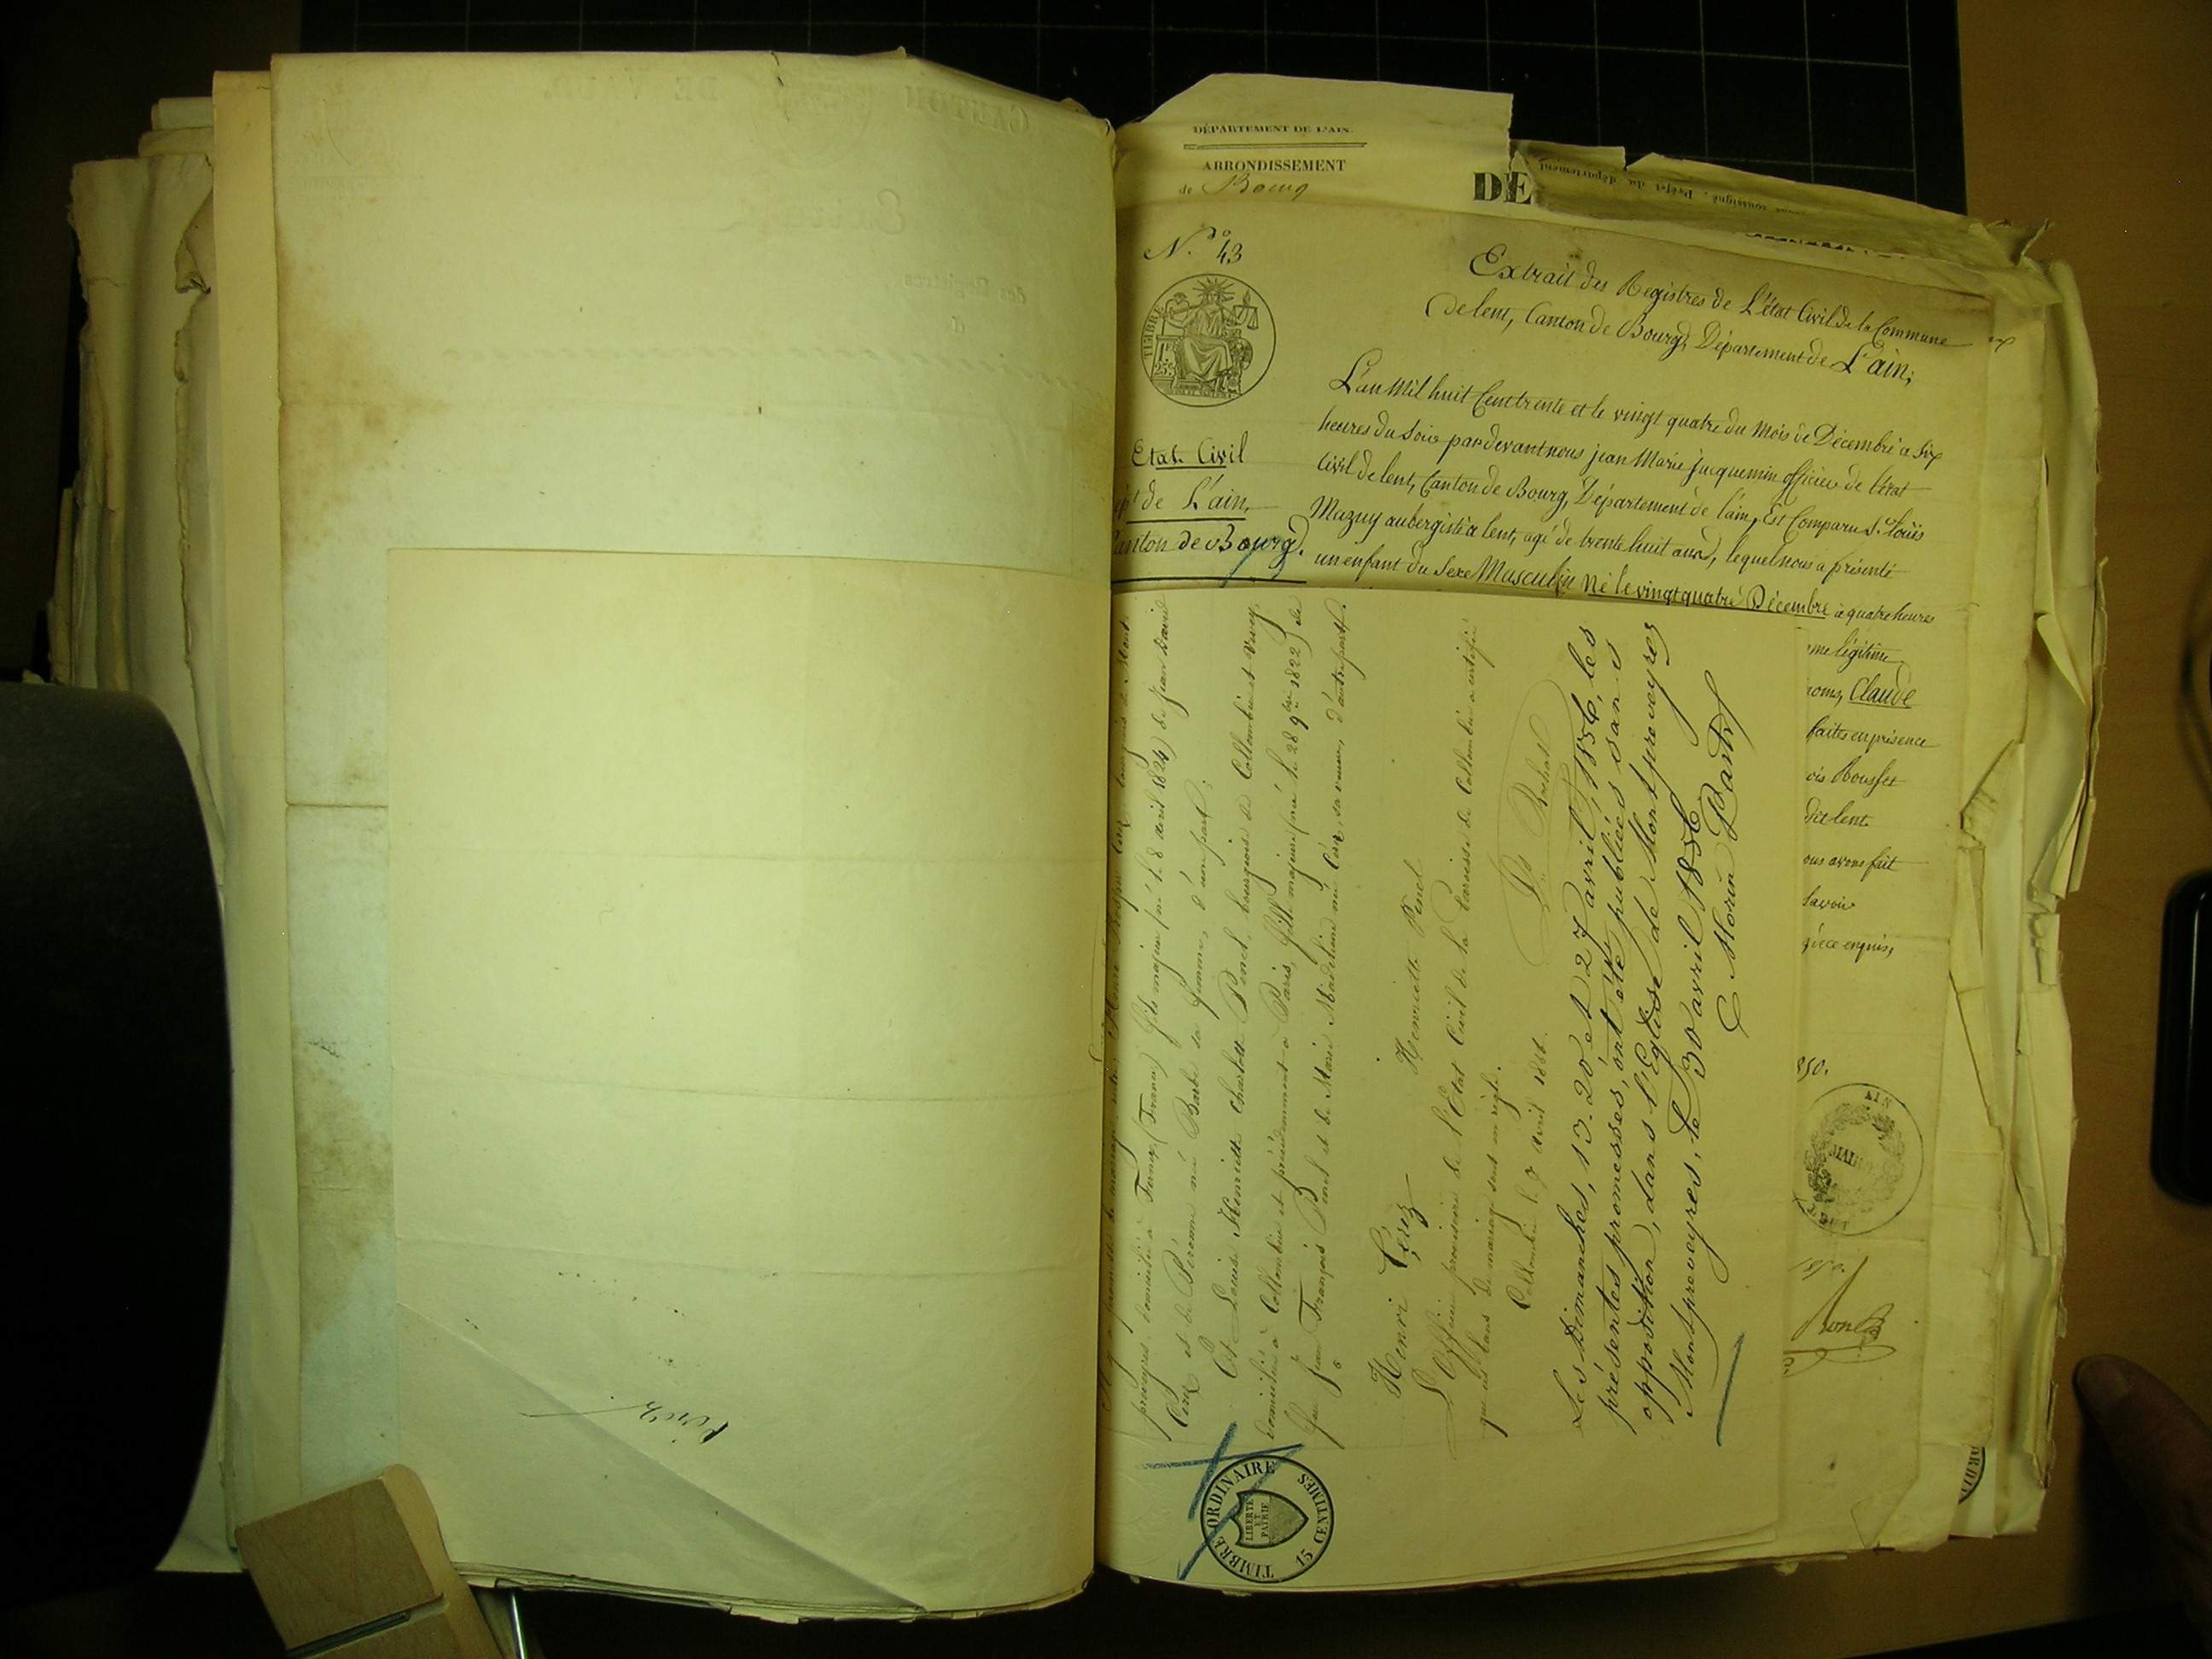 DÉPARTEMENT DE L'AIN.
ARRONDISSEMENT
de Bourg
DE
soussigné, Préfet du département
N.º 43
TIMBRE
1F
25C
Extrait des Registres de L'état Civil de la Commune
de lent, Canton de Bourg, Département de L'ain;
Etat Civil
de L'ain,
Canton de Bourg.
L'an Mil huit Cent trente et le vingt quatre du mois de Décembre à six
heures du Soir par devant nous jean Marie jacquemin officier de l'état
Civil de lent, Canton de Bourg, Département de l'ain, Est Comparu S.r louis
Mazuy aubergiste à lent, agé de trente huit ans, lequel nous a présenté
un enfant du Sexe Masculin Né le vingt quatre Décembre à quatre heures
me légitime
noms, Claude
faites en présence
ois Rousset
dit lent.
ous avons fait
Savoir
de ce enquis,
1850.
AIN
MAIRIE
Il y a promesse de mariage entre Henri Cérez bourgeois de Mont
preveyres domicilié à Fernex (France) fils majeur (né le 8 avril 1824) de Jean David
Cérez et de Péronne née Barbe sa femme, d'une part;
Et Louise Henriette Charlotte Penel, bourgeoise de Collombier et Vevey,
domiciliée à Collombier et précédemment à Paris, fille majeure (née le 28 9bre 1822) de
feu Jean François Penel et de Marie Madelaine née Cérez sa veuve, d'autre part.
Henri Cérez Henriette Penel
L'Officier provisoire de l'Etat Civil de la Paroisse de Collombier a certifié
que ces bans de mariage sont en règle.
Collombier le 9 avril 1856.
Ls Rochat
Les Dimanches, 13. 20 et 27 avril, 1856, les
présentes promesses, ont été publiées sans
opposition, dans l'Eglise de Montpreveyres
Montpreveyres, le 30 avril 1856
C Morin Past.
TIMBRE ORDINAIRE
LIBERTÉ
ET
PATRIE
15 CENTIMES
CANTON DE VAUD.
Extrait
des Registres
d
Cérez